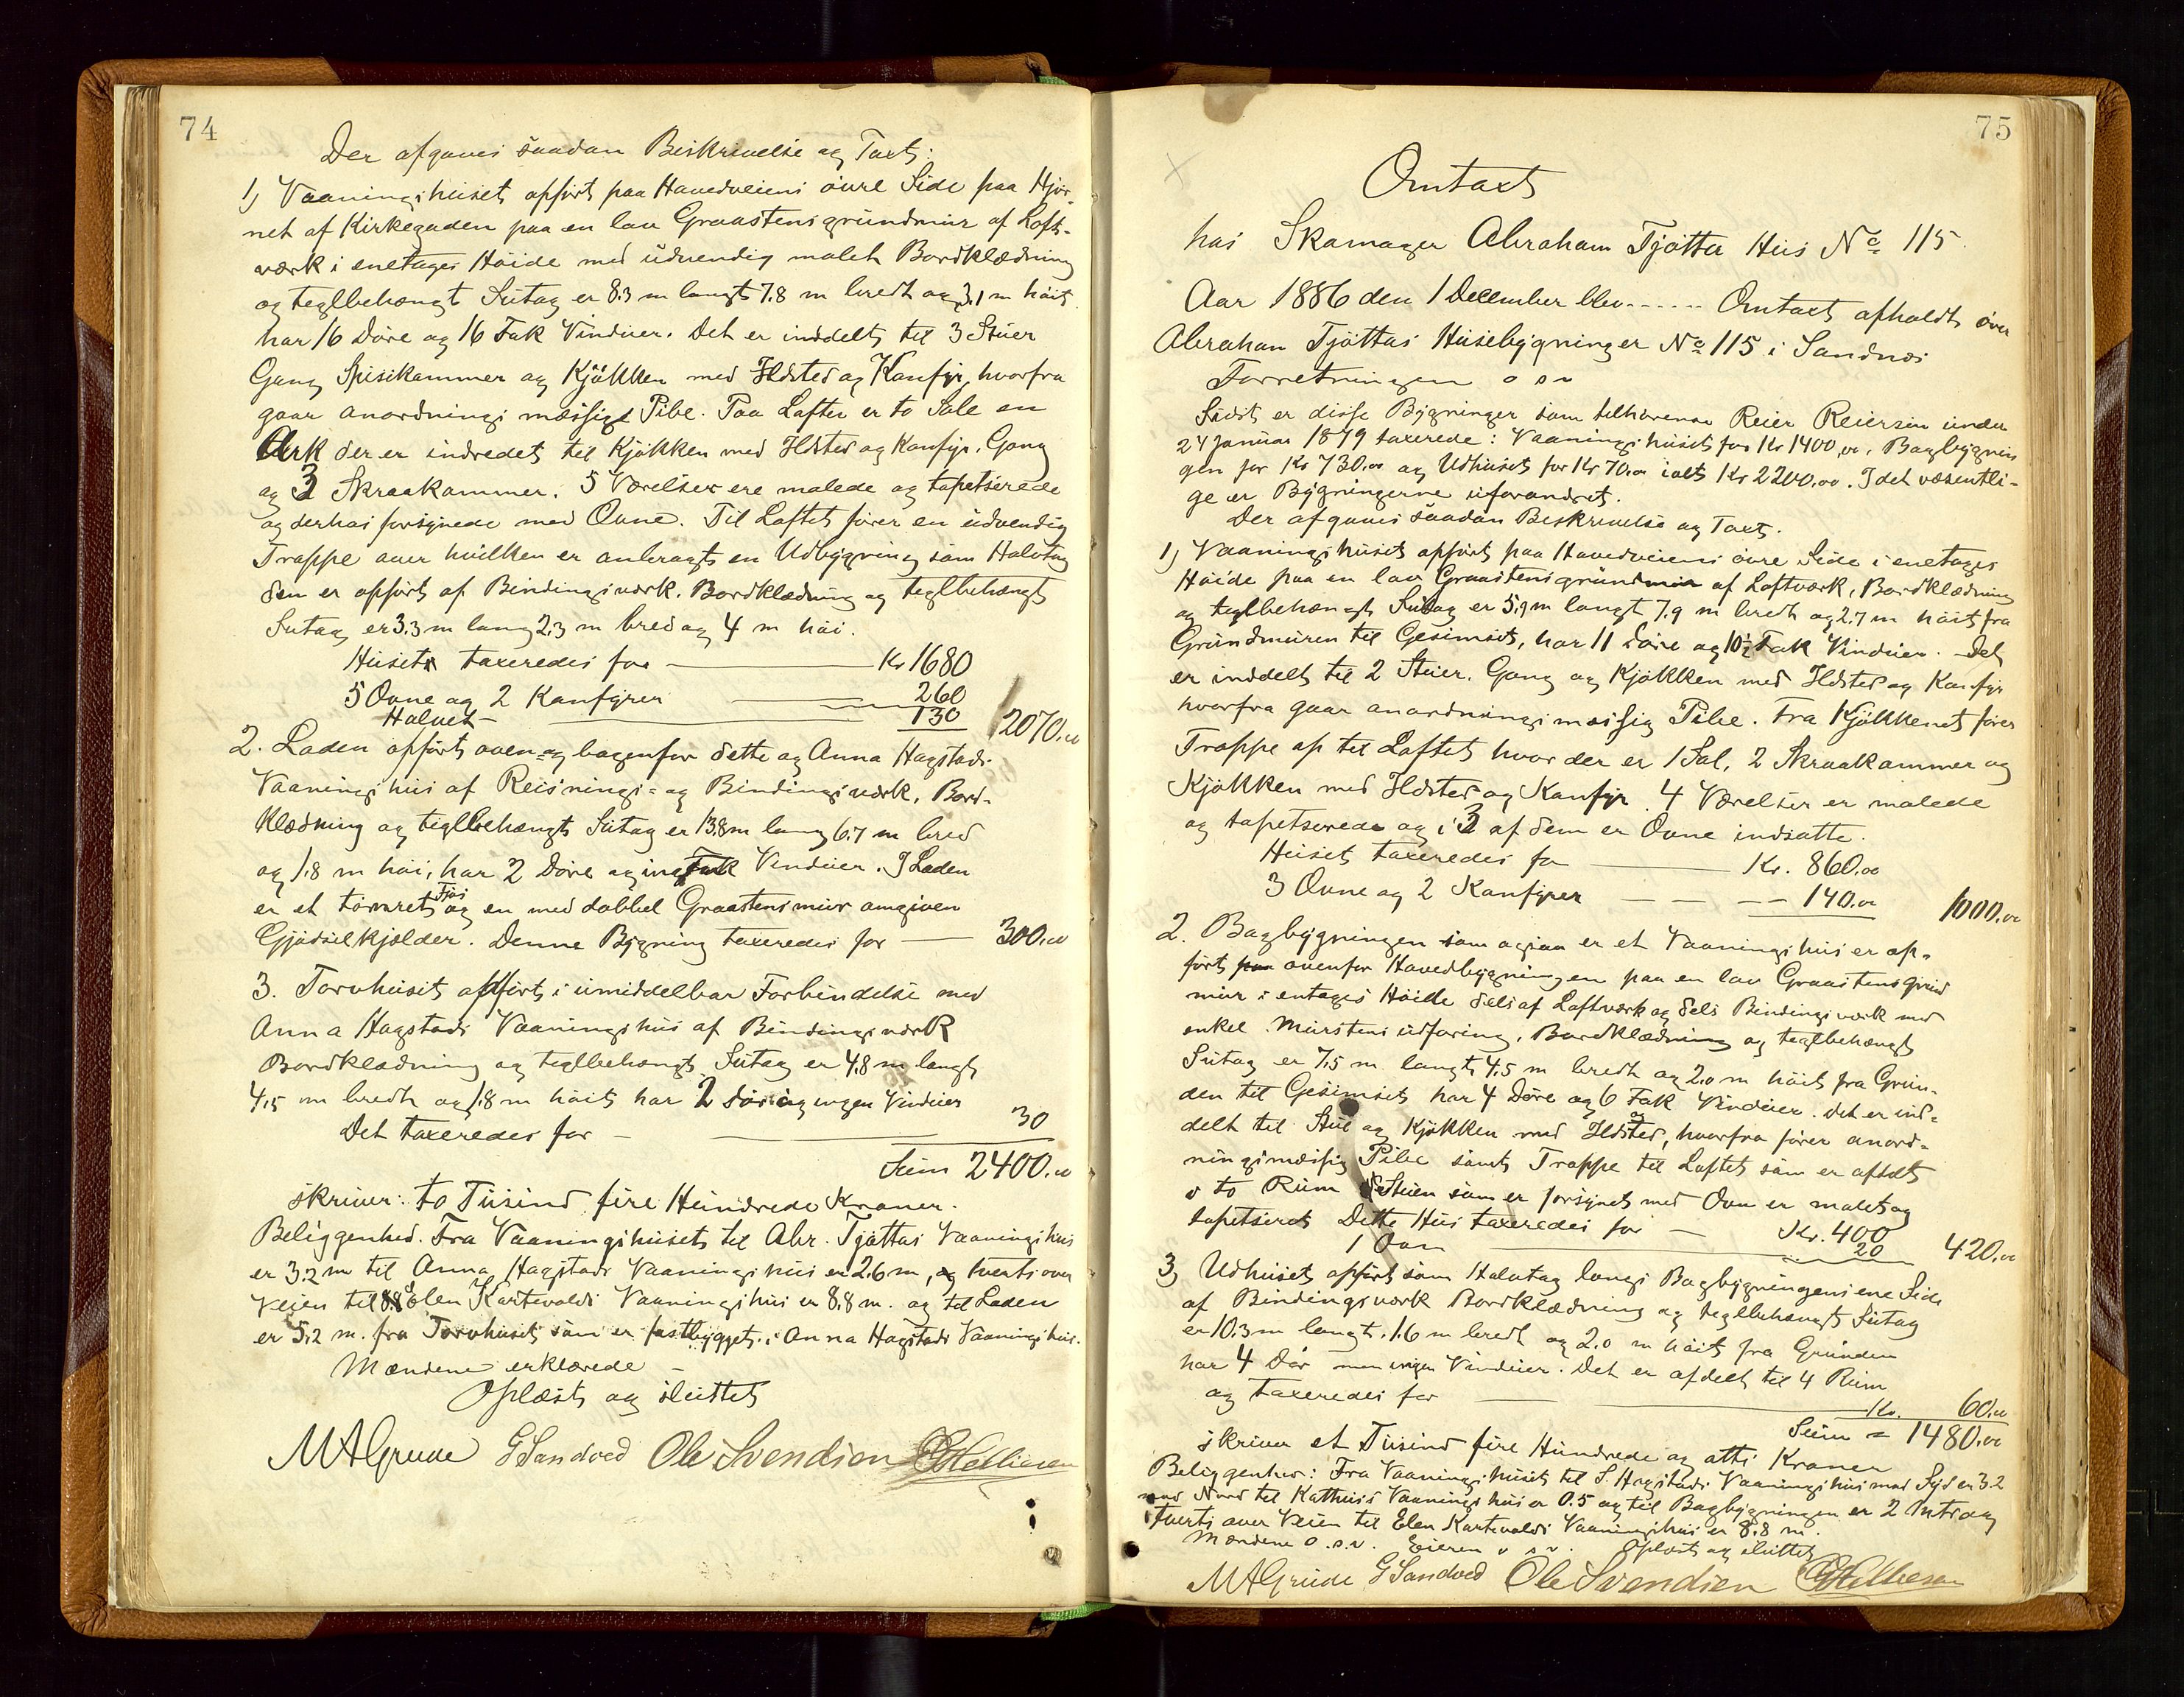 74
Der afgaves saadan Beskrivelse og Taxt:
1) Vaaningshuset opført paa Hovedveiens øvre Side paa Hjør-
net af Kirkegaden paa en lav Graastensgrundmur af Loft-
værk i enetages Høide med udvendig malet Bordklædning
og teglbehængt Sutag er 8.3 m langt 7.8 m bredt og 3.1 m høit
har 16 Døre og 16 Fak Vinduer. Det er inddelt til 3 Stuer
Gang Spisekammer og Kjøkken med Ildsted og Komfyr, hvorfra
gaar anordningsmæssige Pibe. Paa Loftet er to Sale en
Ark der er indredet til Kjøkken med Ildsted og Komfyr, Gang
og 3 Skraakammer. 5 Værelser ere malede og tapetserede
og derhos forsynede med Ovne. Til Loftet fører en udvendig
Trappe over hvilken er anbragt en Udbygning som Halvtag
den er opført af Bindingsværk. Bordklædning og teglbehængt
Sutag er 3.3 m lang 2.3 m bred og 4 m høi.
Huset taxeredes for — Kr 1680
5 Ovne og 2 Komfyrer — 260
Halvet — 130 2070.00
2. Laden opført oven og bagenfor dette og Anna Hagstads
Vaaningshus af Reisnings- og Bindingsværk, Bord-
klædning og teglbehængt Sutag er 13.8 m lang 6.7 m bred
og 1.8 m høi, har 2 Døre og ingen Vinduer. I Laden
er et tømret Fjøs og en med dobbel Graastensmur omgiven
Gjødselkjelder. Denne Bygning taxeredes for — 300.00
3. Torvhuset opført i umiddelbar Forbindelse med
Anna Hagstads Vaaningshus af Bindingsværk
Bordklædning og teglbehængt Sutag er 4.8 m langt
4.5 m bredt og 1.8 m høit har 2 Døre og ingen Vinduer
Det taxeredes for — 30
Sum 2400.00
skriver: to Tusind fire Hundrede Kroner.
Beliggenhed. Fra Vaaningshuset til Abr. Tjøttas Vaaningshus
er 3.2 m til Anna Hagstads Vaaningshus er 2.6 m, og tverts over
Veien til Elen Kartevolds Vaaningshus er 8.8 m. og til Laden
er 5.2 m. fra Torvhuset som er fastbygget i Anna Hagstads Vaaningshus.
Mændene erklærede —
Oplæst og sluttet
M A Grude G Sandved Ole Svendsen
75
Omtaxt
hos Skomager Abraham Tjøtta Hus No 115
Aar 1886 den 1 December blev ...... Omtaxt afholdt over
Abraham Tjøttas Husebygninger No 115 i Sandnæs
Forretningen o s v
Sidst er disse Bygninger som tilhørende Reier Reiersen under
24 Januar 1879 taxerede: Vaaningshuset for Kr 1400,00, Bagbygnin
gen for Kr 730.00 og Udhuset for Kr 70.00 ialt Kr 2200.00. I det væsentli-
ge er Bygningerne uforandret.
Der afgaves saadan Beskrivelse og Taxt.
1) Vaaningshuset opført paa Hovedveiens øvre Side i enetages
Høide paa en lav Graastensgrundmur af Loftværk, Bordklædning
og teglbehængt Sutag er 5.9 m langt 7.9 m bredt og 2.7 m høit fra
Grundmuren til Gesimset, har 11 Døre og 10½ Fak Vinduer. Det
er inddelt til 2 Stuer, Gang og Kjøkken med Ildsted og Komfyr
hvorfra gaar anordningsmæssig Pibe. Fra Kjøkkenet fører
Trappe op til Loftet hvor der er 1 Sal, 2 Skraakammer og
Kjøkken med Ildsted og Komfyr. 4 Værelser er malede
og tapetserede og i 3 af dem er Ovne indsatte.
Huset taxeredes for — Kr. 860.00
3 Ovne og 2 Komfyrer — 140.00 1000.00
2. Bagbygningen som ogsaa er et Vaaningshus er op-
ført ovenfor Hovedbygningen paa en lav Graastensgrund
mur i enetages Høide dels af Loftværk og dels Bindingsværk med
enkel Murstensudforing, Bordklædning og teglbehængt
Sutag er 7.5 m langt 4.5 m bredt og 2.0 m høit fra Grun-
den til Gesimset har 4 Døre og 6 Fak Vinduer. Det er ind-
delt til Stue og Kjøkken med Ildsted, hvorfra fører anord-
ningsmæssig Pibe samt Trappe til Loftet som er afdelt
i to Rum. Stuen som er forsynet med Ovn er malet og
tapetseret Dette Hus taxeredes for — Kr. 400
1 Ovn — 20 420.00
3) Udhuset opført som Halvtag langs Bagbygningens ene Side
af Bindingsværk Bordklædning og teglbehængt Sutag
er 10.3 m langt, 1.6 m bredt og 2.0 m høit fra Grunden
har 4 Dør men ingen Vinduer. Det er afdelt til 4 Rum
og taxeredes for — Kr. 60.00
Sum = 1480.00
skriver et Tusind fire Hundrede og otti Kroner
Beliggenhed: Fra Vaaningshuset til S. Hagstads Vaaningshus mod Syd er 3.2
mod Nord til Vaaningshus er 0.5 og til Bagbygningen er 2 Mtr og
tverts over Veien til Elen Kartevolds Vaaningshus er 8.8 m.
Mændene o.s.v. Eieren o s v. Oplæst og sluttet
M A Grude G Sandved Ole Svendsen